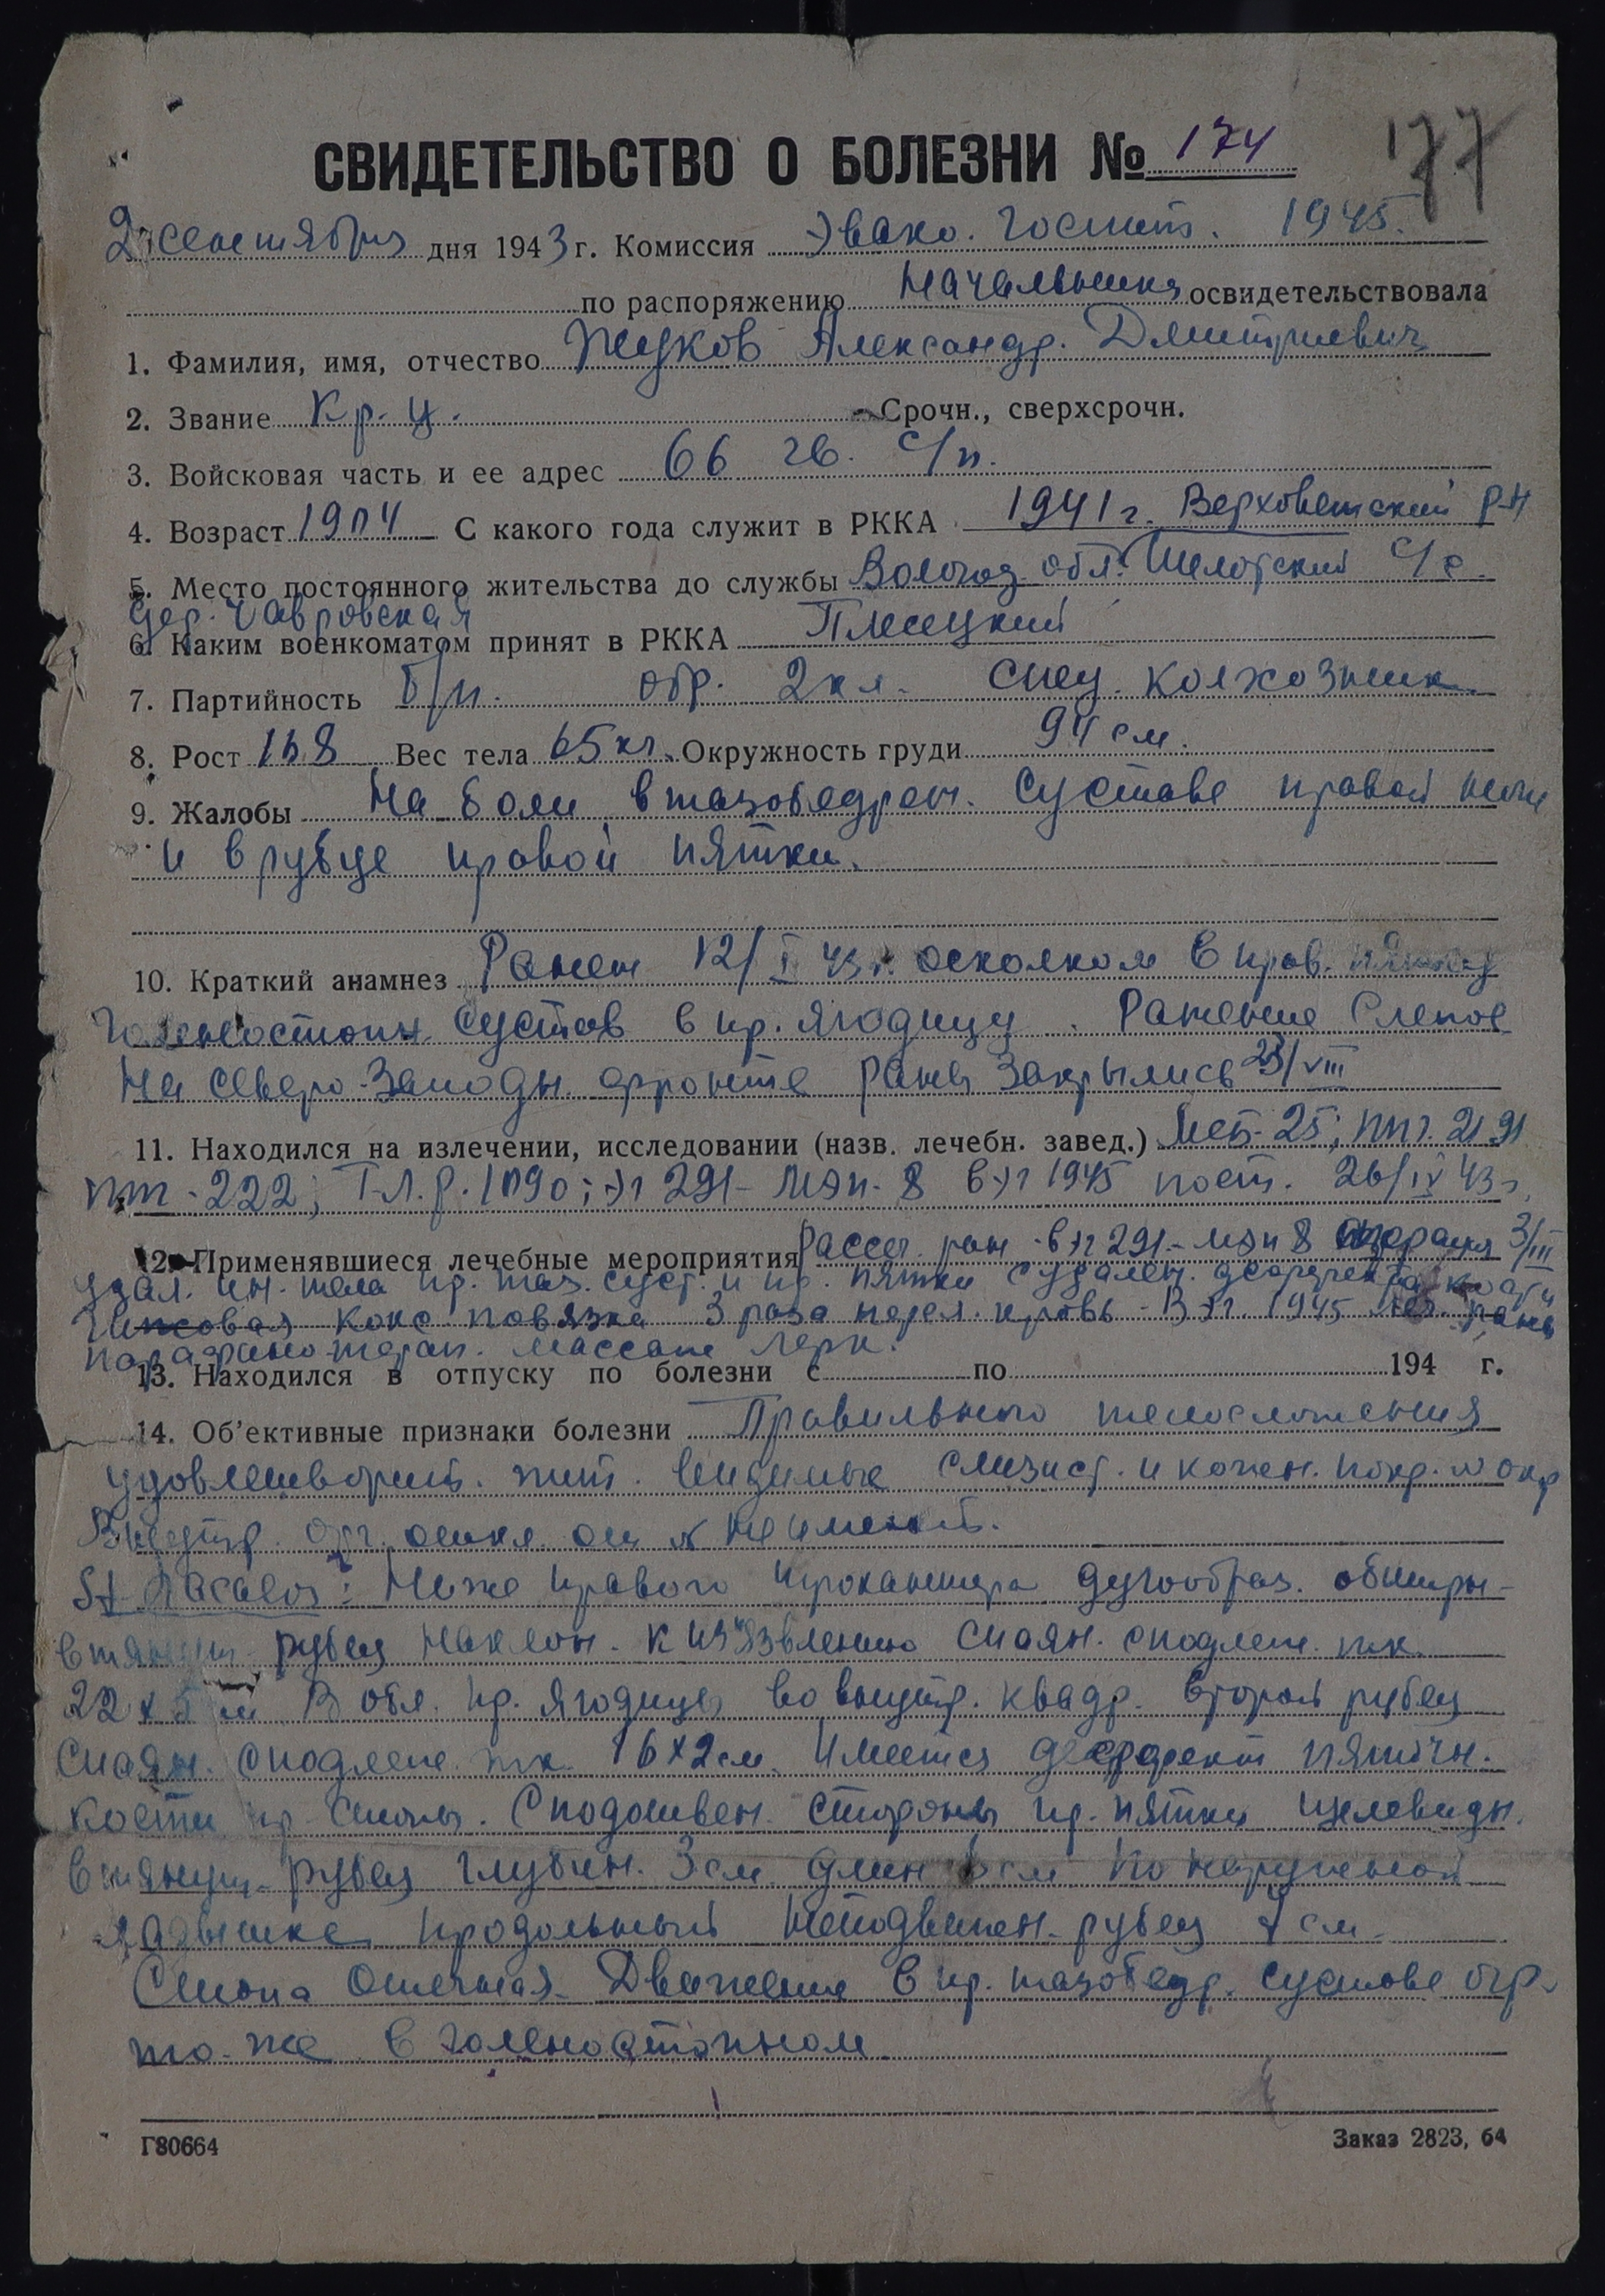 СВИДЕТЕЛЬСТВО О БОЛЕЗНИ № 174
177
2 сентября дня 1943 г. Комиссия Эвако. Госпит. 1945.
по распоряжению Начальника освидетельствовала
1. Фамилия, имя, отчество Жуков Александр. Дмитриевич
2. Звание Кр-ц. Срочн., сверхсрочн.
3. Войсковая часть и ее адрес 66 гв. с/п.
4. Возраст 1904 С какого года служит в РККА 1941 г. Верховажский р-н
5. Место постоянного жительства до службы Вологод. обл. Шелотский с/с.
дер. Гавровская
6. Каким военкоматом принят в РККА Плесецкий
7. Партийность б/п. обр. 2 кл. спец. колхозник.
8. Рост 168 Вес тела 65 кг. Окружность груди 94 см.
9. Жалобы На боли в тазобедрен. суставе правой ноги
и в рубце правой пятки.
10. Краткий анамнез Ранен 12/I 43 г. осколком в прав. пятку
голеностопн. сустав в пр. ягодицу. Ранение слепое
На северо-западн. фронте раны закрылись 23/VIII
11. Находился на излечении, исследовании (назв. лечебн. завед.) Мсб-25; ппг. 2191
222; Т.Л.Р. 1090; эг 291- мэп-8 в эг 1945 пост. 26/IV 43 г.
12. Применявшиеся лечебные мероприятия Рассеч. ран - в эг 291 - мэп 8 операция 3/III
удал. ин. тела пр. таз. суст. и пр. пятки с удален. кости
Гипсовая кокс повязка 3 раза перел. кровь - В эг. 1945 леч. раны
парафино-терап. массаж лерк.
13. Находился в отпуску по болезни с по 194 г.
14. Об'ективные признаки болезни Правильного телосложения
удовлетворит. пит. видимые слизист. и кожен. покр. N окр
Внутр. орг. откл. от N не имеют.
St. localis: Ниже правого трохантера дугообраз. обширн-
втянут. рубец наклон. к изъязвлению спаян. с подлеж. тк.
22 х 5 см В обл. пр. ягодицы во внутр. квадр. второй рубец
спаян. с подлеж. тк. 16 х 2 см. Имеется дефект пяточн.
кости пр. стопы. С подошвен. стороны пр. пятки щелевидн.
втянут. рубец глубин. 3 см. длин 6 см. По наружной
лодыжке продольный неподвижен. рубец 7 см.
Стопа отечная. Движение в пр. тазобедр. суставе огр.
то-же в голеностопном
Г80664 Заказ 2823, 64